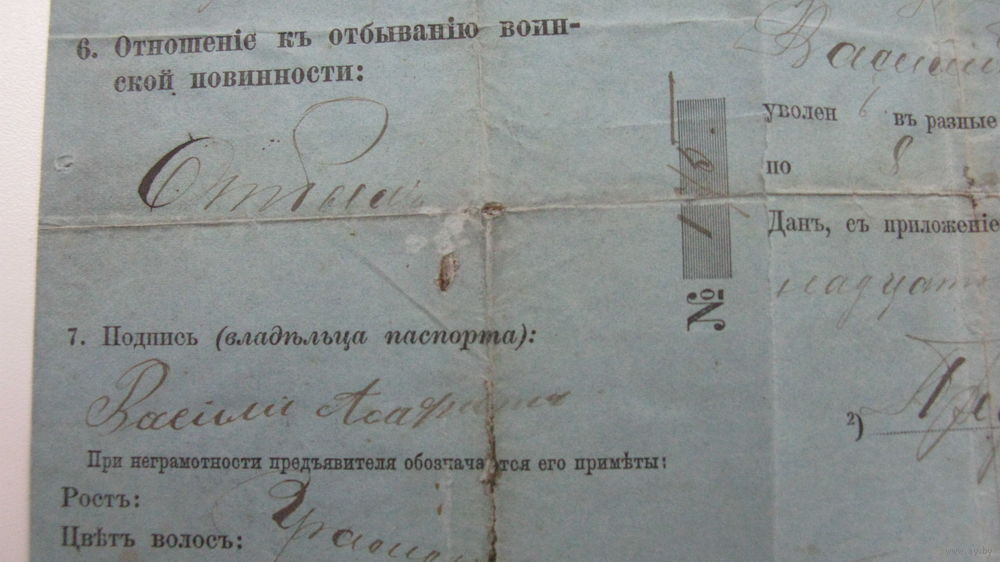 6. Отношеніе къ отбыванію воин-
ской повинности:
Отбылъ
7. Подпись (владѣльца паспорта):
Василій
При неграмотности предъявителя обозначаются его примѣты:
Ростъ:
Цвѣтъ волосъ:
№
Василій
уволен въ разные
по 8
Данъ, съ приложеніе
2)
www.ay.by